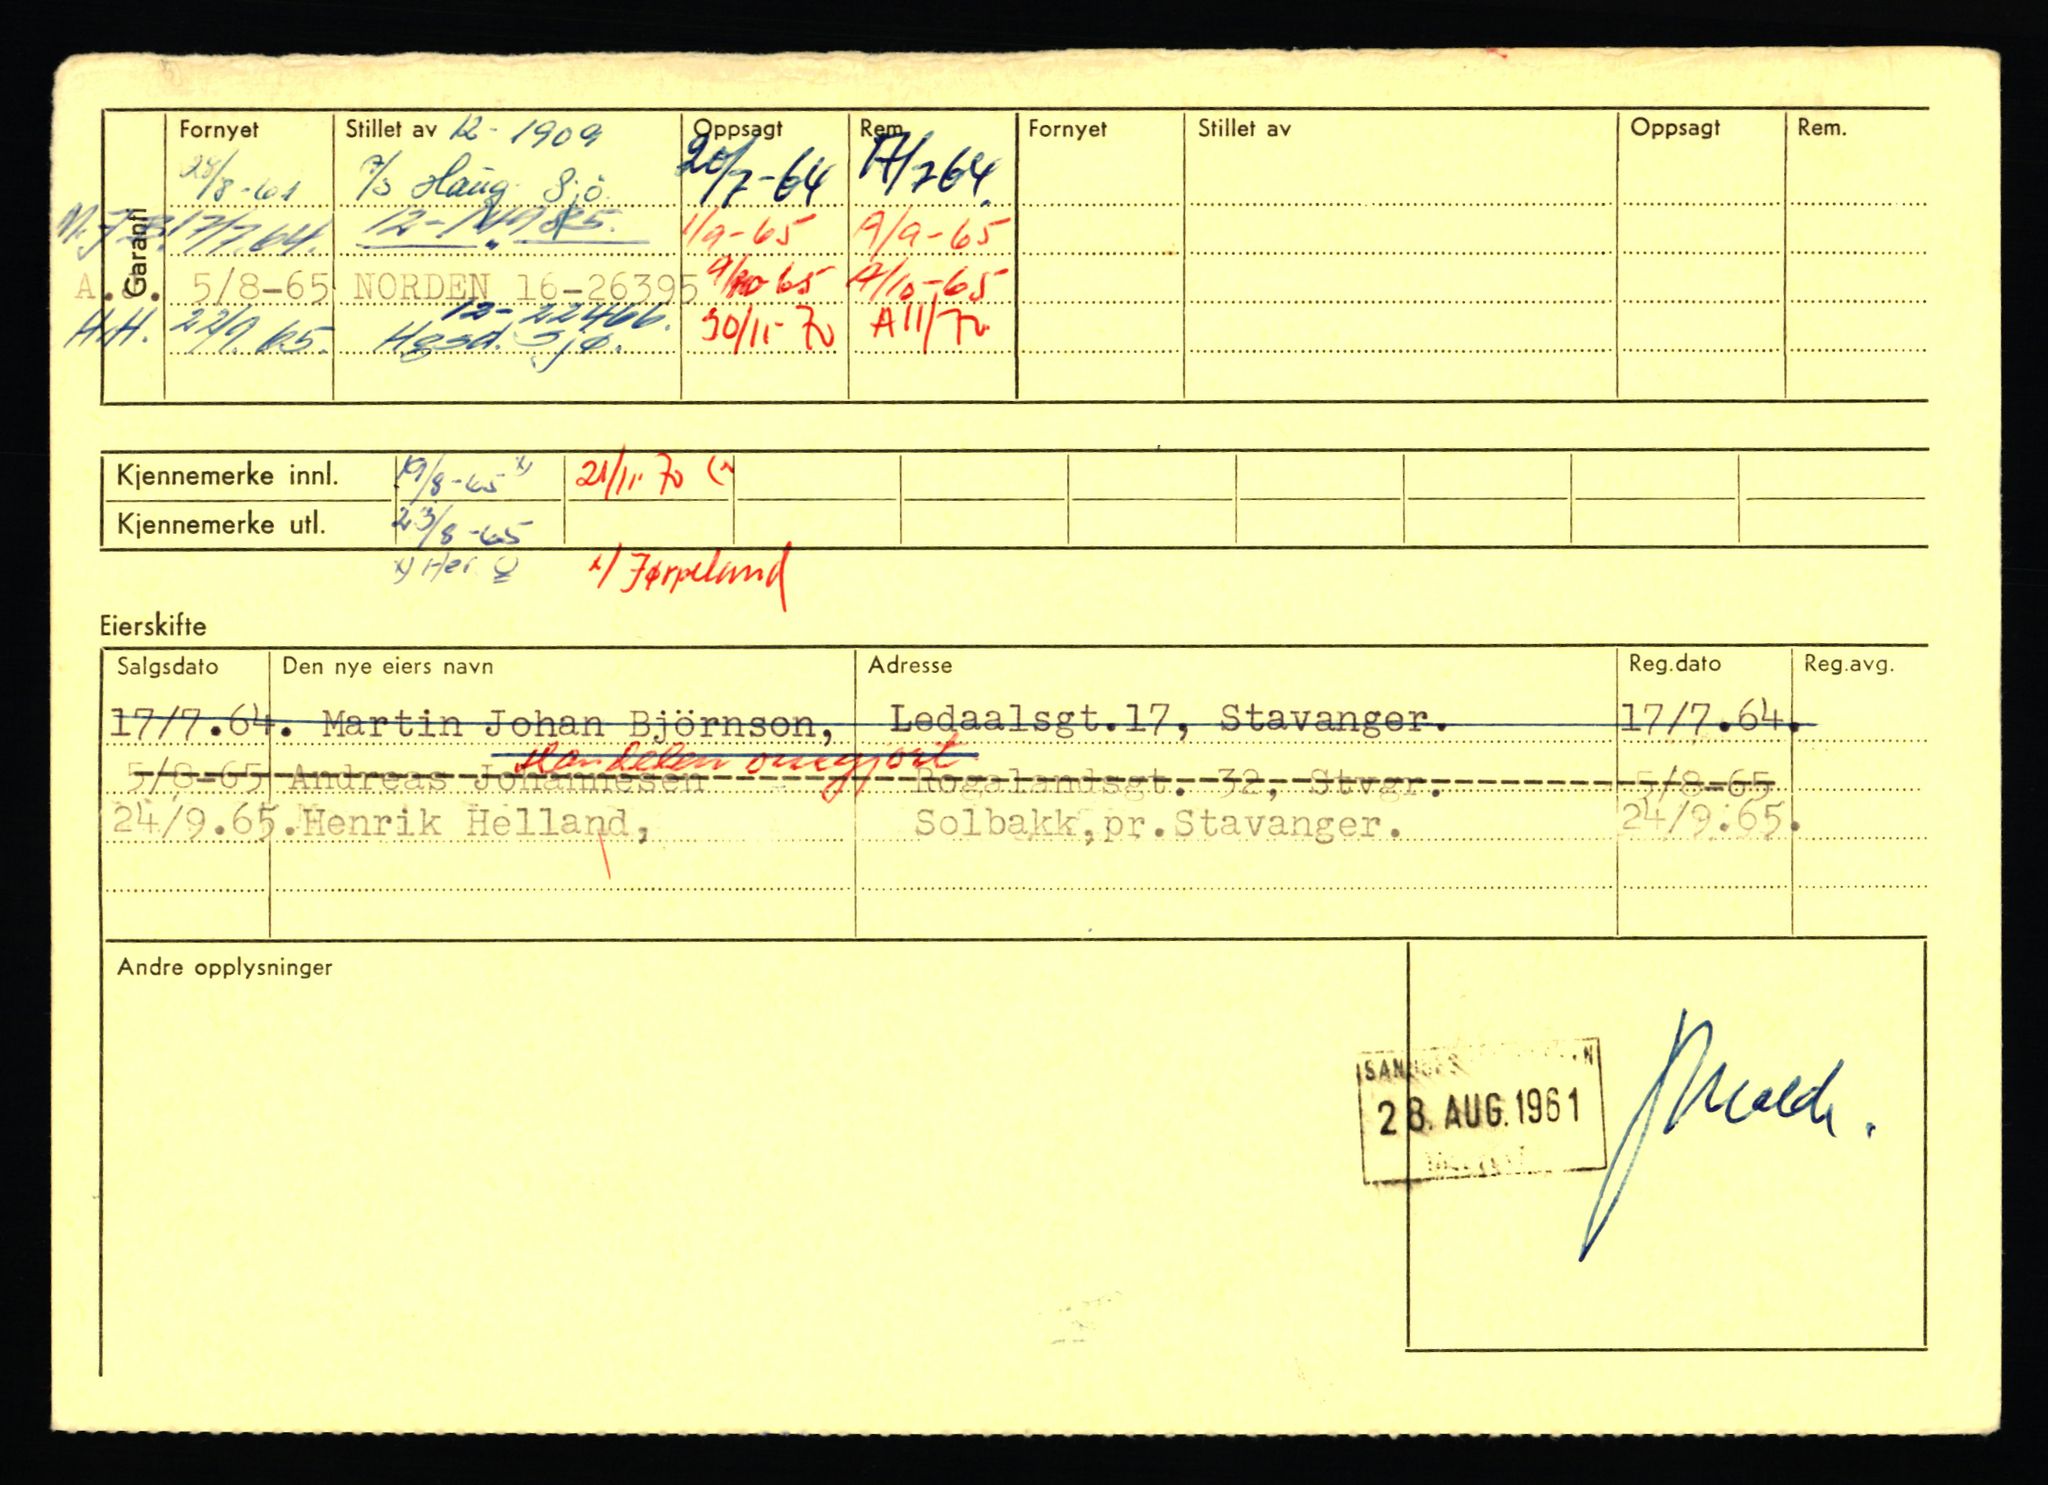 Garanti
Fornyet Stillet av 12-1909 Oppsagt Rem. Fornyet Stillet av Oppsagt Rem.
28/8-61 A/S Haug. Sjö. 20/7-64 17/7 64.
M.J.B. 17/7.64. 1/9-65 A/9-65
A.J. 5/8-65 NORDEN 16-26395 65 A/10-65
12-22466.
H.H. 22/9.65. Hgsd. Sjø. 30/11-70 A 11/70
Kjennemerke innl. 19/8-65 x) 21/11-70
Kjennemerke utl. 23/8-65
x) Her x/ Jørpeland
Eierskifte
Salgsdato Den nye eiers navn Adresse Reg.dato Reg.avg.
17/7.64. Martin Johan Björnson, Ledaalsgt.17, Stavanger. 17/7.64.
Handelen omgjort
5/8-65 Andreas Johannesen Rogalandsgt. 32, Stvgr. 5/8-65
24/9.65. Henrik Helland, Solbakk,pr.Stavanger. 24/9.65.
Andre opplysninger
28. AUG. 1961